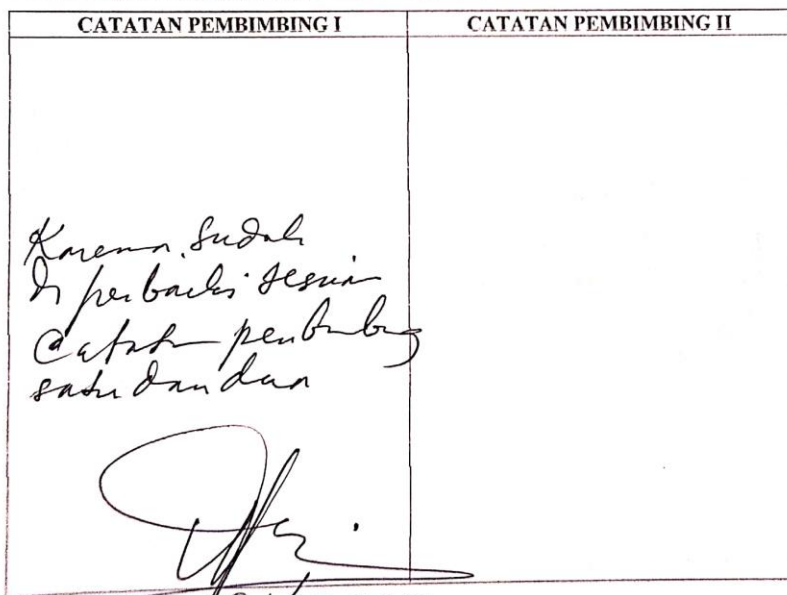 CATATAN PEMBIMBING I
CATATAN PEMBIMBING II
Karena sudah
di perbaiki sesuai
Catatan pembimbing
satu dan dua